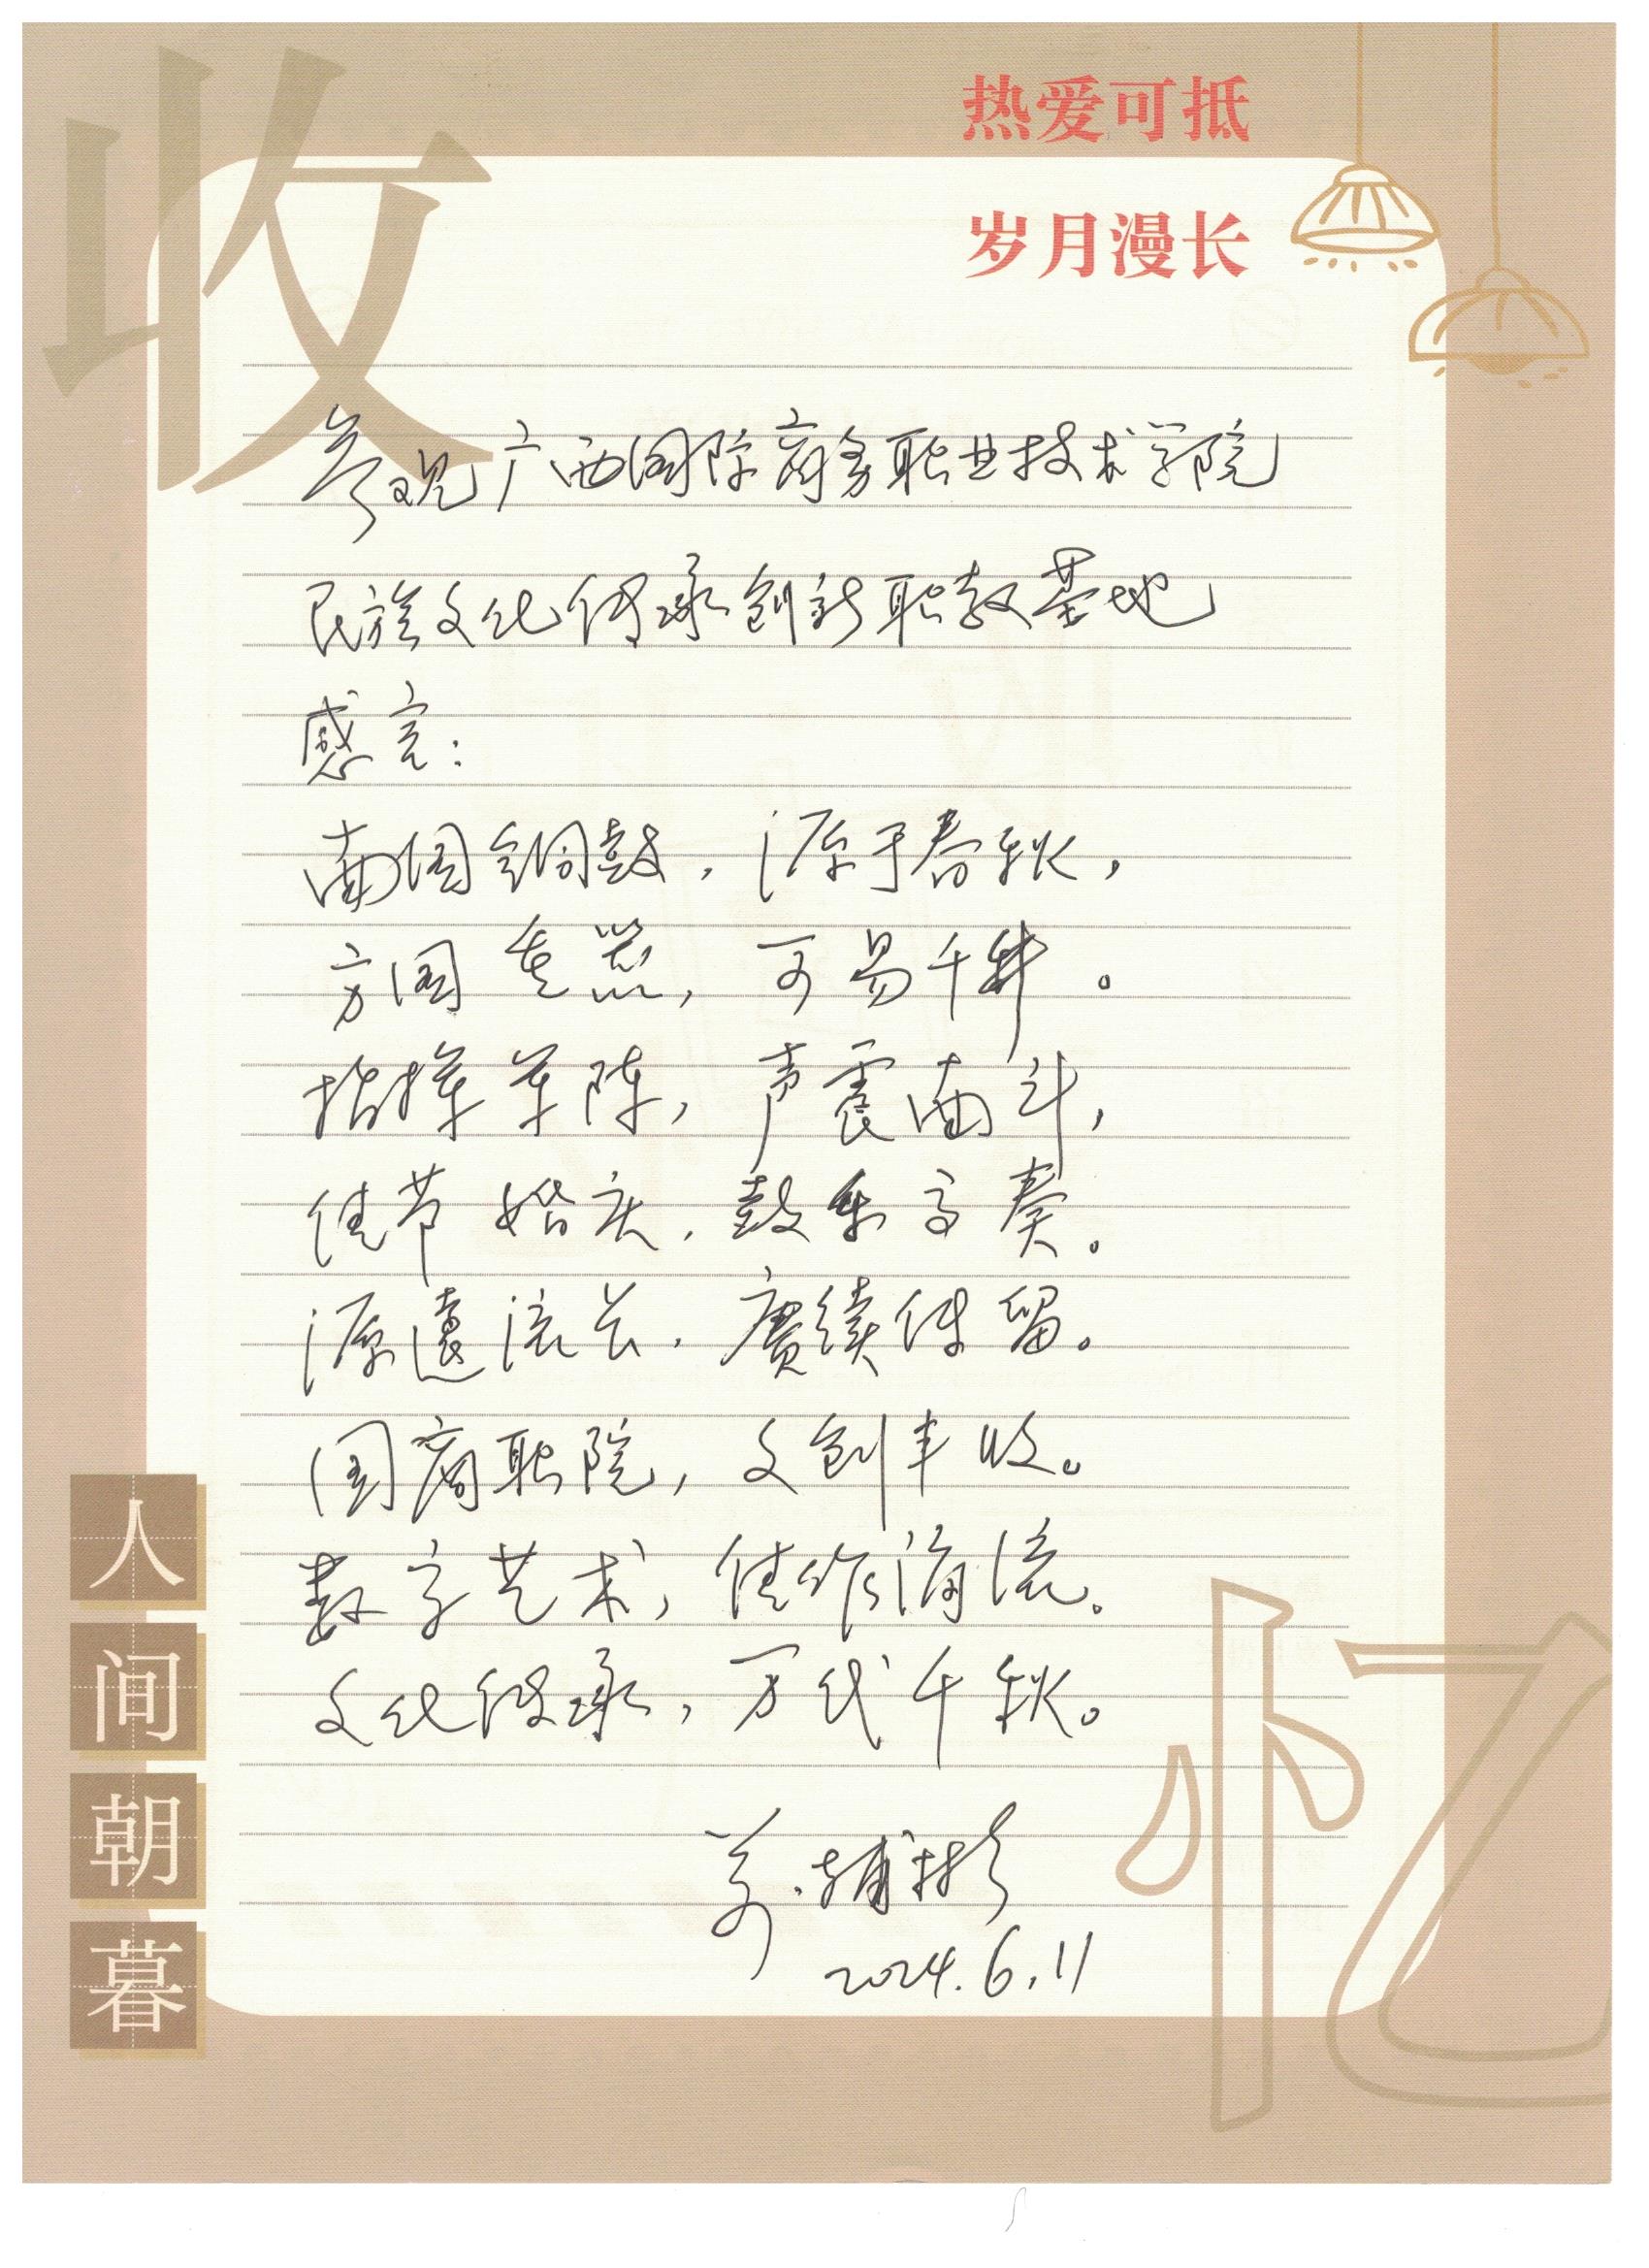 收
热爱可抵
岁月漫长
参观广西国际商务职业技术学院
民族文化传承创新职教基地
感言：
南国铜鼓，源于春秋，
方国重器，可易千牛。
指挥军阵，声震南斗，
佳节婚庆，鼓乐高奏。
源遠流长，赓续传留。
国商职院，文创丰收。
数字艺术，佳作海流。
文化传承，万代千秋。
万辅彬
2024.6.11
人
间
朝
暮
忆